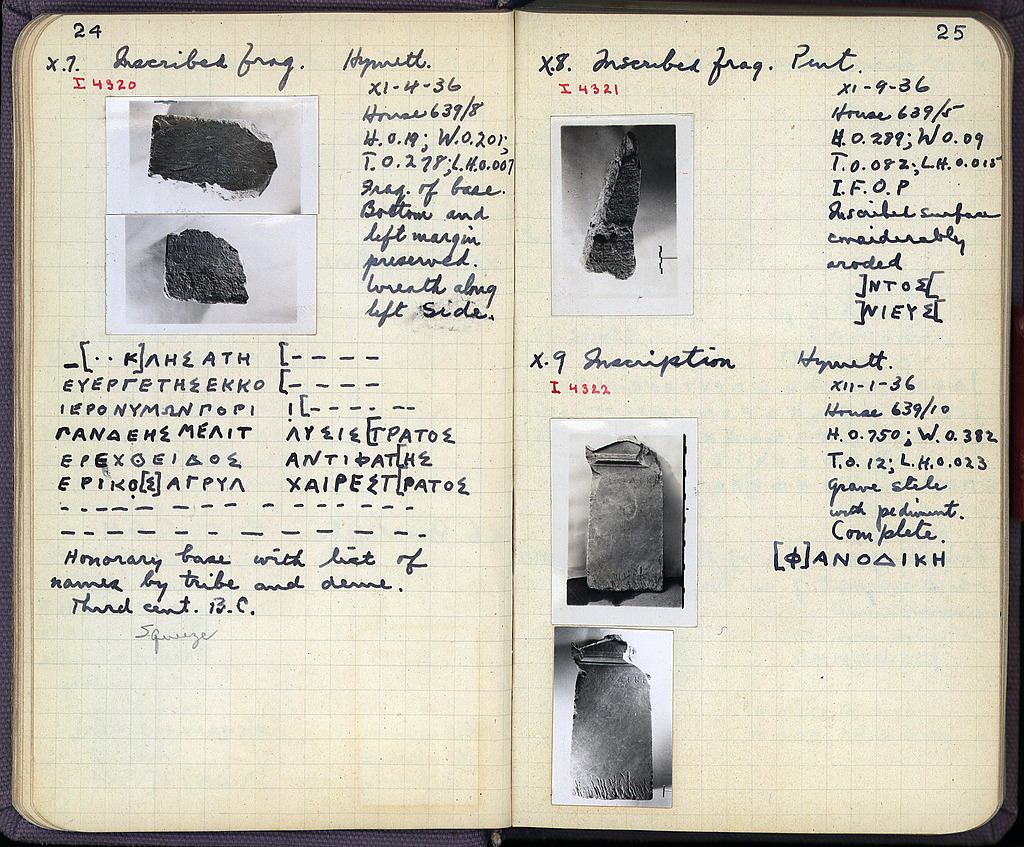 24
X.7. Inscribed frag. Hymett.
I 4320
XI-4-36
House 639/8
H.0.19; W.0.201;
T.0.278; L.H.0.007
Frag. of base.
Bottom and
left margin
preserved.
Wreath along
left side.
_[··Κ]ΛΗΣ ΑΤΗ [----
ΕΥΕΡΓΕΤΗΣΕΚΚΟ [----
ΙΕΡΟΝΥΜΩΝΓΟΡΙ Ι[-----
ΓΑΝΔΕΗΣ ΜΕΛΙΤ ΛΥΣΙΣ[ΤΡΑΤΟΣ
ΕΡΕΧΘΕΙΔΟΣ ΑΝΤΙΦΑΤ[ΗΣ
ΕΡΙΚΟ[Σ]ΑΓΡΥΛ ΧΑΙΡΕΣΤ[ΡΑΤΟΣ
Honorary base with list of
names by tribe and deme.
Third cent. B.C.
Squeeze
25
X.8. Inscribed frag. Pent.
I 4321
XI-9-36
House 639/5
H.0.289; W 0.09
T.0.082; L.H.0.015
I.F.O.P
Inscribed surface
considerably
eroded
]ΝΤΟΣ[
]ΝΙΕΥΣ[
X.9 Inscription Hymett.
I 4322
XII-1-36
House 639/10
H.0.750; W.0.382
T.0.12; L.H.0.023
Grave stele
with pediment.
Complete.
[Φ]ΑΝΟΔΙΚΗ